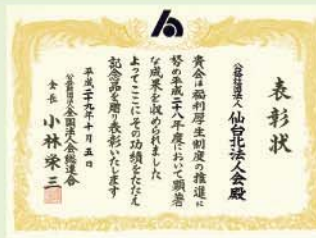 表彰状
公益社団法人 仙台北法人会殿
貴会は福利厚生制度の推進に
努め平成二十八年度において顕著
な成果を収められました
よってここにその功績をたたえ
記念品を贈り表彰いたします
平成二十九年十月五日
公益財団法人全国法人会総連合
会長 小林栄三